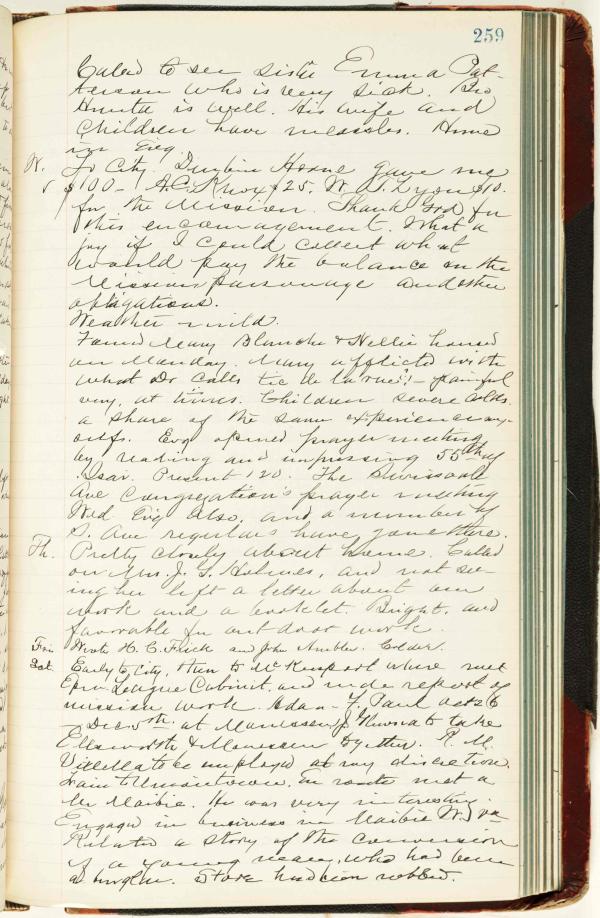 259
Called to see sister Emma Pat-
terson who is very sick. Bro
Hunter is well. His wife and
children have measles. Home
in Evg.
W. To City. Durbin Horne gave me
$100 - A.C. Knox $25. W. J. Lyon $10.
for the Mission. Thank God for
this encouragement. What a
joy if I could collect what
would pay the balance on the
Mission parsonage and other
obligations.
Weather mild.
Found Mary Blanche & Nellie
on Monday. Mary afflicted with
what Dr calls tic de - painful
very, at times. Children severe colds.
a share of the same experience my-
self. Evg opened prayer meeting
by reading and impressing 55th of
Isar. Present 120. The
Ave Congregation's prayer meeting
Wed Evg also, and a number of
S. Ave regulars have gone there.
Th. Pretty closely about home. Called
on Mrs. J. G. Holmes, and not see-
ing her left a letter about our
work and a booklet. Bright, and
favorable for out door work.
Fri Wrote H. C. Frick and John Ambler. Colder.
Sat. Early to City. Run to McKeesport where met
Epw. League Cabinet, and made report of
mission work. Adam F. Paul Oct 26
- Dec 5th. at Monessen. J. to take
Ellsworth & Monessen together. R. M.
to be employed at my discretion.
Train to Uniontown. En route met a
Mr Maibie. He was very interesting.
Engaged in business in Maibie W. Va
Related a story of the conversion
of a young man, who had been
a burglar. Store had been robbed.